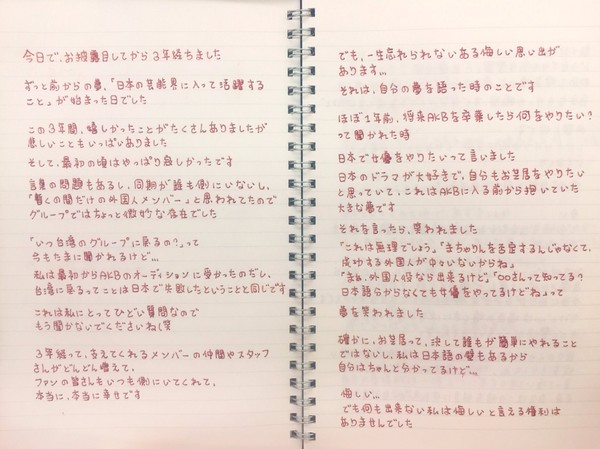 今日で、お披露目してから3年経ちました
ずっと前からの夢、「日本の芸能界に入って活躍する
こと」が始まった日でした
この3年間、嬉しかったことがたくさんありましたが
悲しいこともいっぱいありました
そして、最初の頃はやっぱり寂しかったです
言葉の問題もあるし、同期が誰も側にいないし、
「暫くの間だけの外国人メンバー」と思われてたので
グループではちょっと微妙な存在でした
「いつ台湾のグループに戻るの？」って
今もたまに聞かれるけど...
私は最初からAKBのオーディションに受かったのだし、
台湾に戻るってことは日本で失敗したということと同じです
これは私にとってひどい質問なので
もう聞かないでくださいね(笑
3年経って、支えてくれるメンバーの仲間やスタッフ
さんがどんどん増えて、
ファンの皆さんもいつも側にいてくれて、
本当に、本当に幸せです
でも、一生忘れられないある悔しい思い出が
あります...
それは、自分の夢を語った時のことです
ほぼ1年前、将来AKBを卒業したら何をやりたい？
って聞かれた時
日本で女優をやりたいって言いました
日本のドラマが大好きで、自分もお芝居をやりたい
と思っていて、これはAKBに入る前から抱いていた
大きな夢です
それを言ったら、笑われました
「これは無理でしょう」「まちゃりんを否定するんじゃなくて、
成功する外国人が中々いないからね」
「まぁ、外国人役なら出来るけど」「○○さんって知ってる？
日本語分からなくても女優をやってるけどね」って
夢を笑われました
確かに、お芝居って、決して誰もが簡単にやれること
ではないし、私は日本語の壁もあるから
自分はちゃんと分かってるけど...
悔しい...
でも何も出来ない私は悔しいと言える権利は
ありませんでした